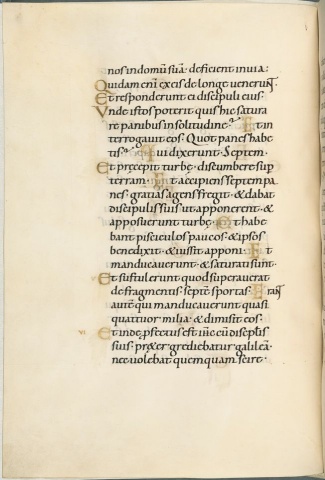 nos in domũ suã · deficient in uia :
Quidam enĩ ex eis de longe uenerunt
Et responderunt ei discipuli eius ·
Vnde istos poterit quis hic satura
re panibus in solitudine · Et in
terrogauit eos · Quot panes habe
tis · Qui dixerunt · Septem ·
Et precepit turbę · discumbere sup
terram · Et accipiens septem pa
nes · gratias agens fregit · & dabat
discipulis suis ut apponerent · &
apposuerunt turbę · Et habe
bant pisciculos paucos · & ipsos
benedixit · & iussit apponi · Et
manducauerunt · & saturati sunt ·
Et sustulerunt quod superauerat
de fragmentis · septẽ sportas · Erant
autẽ qui manducauerunt quasi
quattuor milia · & dimisit eos ·
VI. Et inde profectus est ihc cũ discipulis
suis · preter grediebatur galileã ·
nec uolebat quemquam scire ·